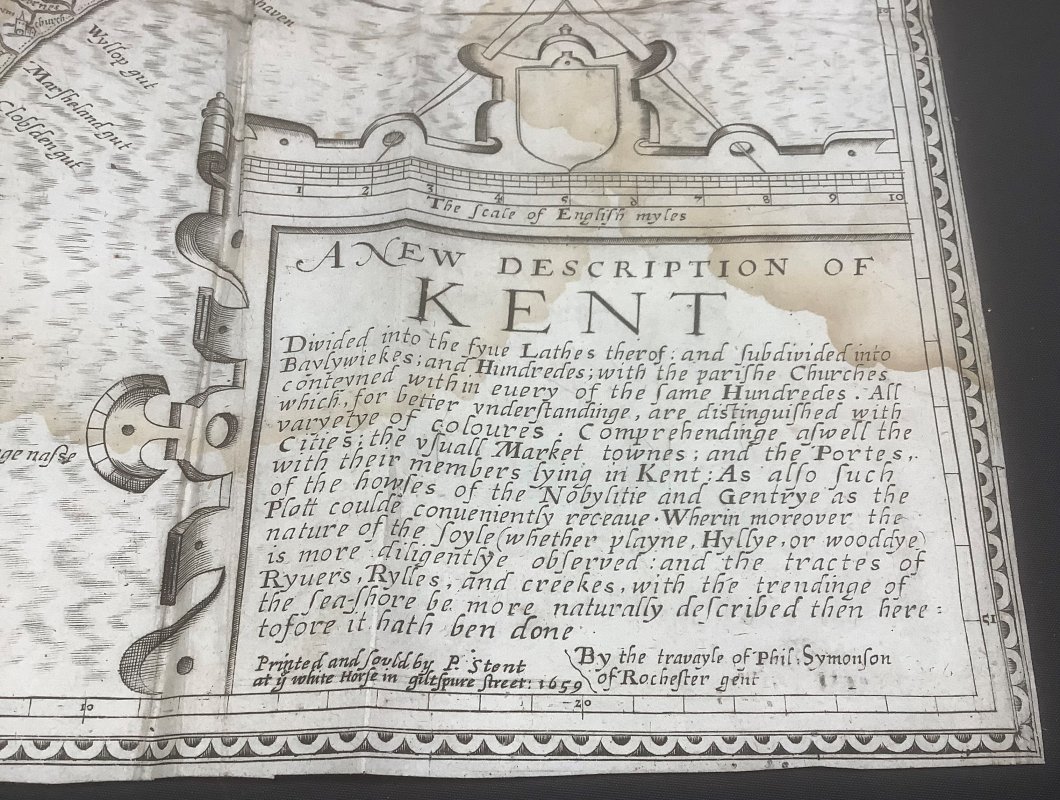 church
haven.
Wyllop gut
Marſheland gut
Clobſden gut
1 2 3 4 5 6 7 8 9 10
The ſcale of Engliſh myles
A NEW DESCRIPTION OF
KENT
Divided into the fyue Lathes therof: and ſubdivided into
Baylywiekes; and Hundredes; with the pariſhe Churches
conteyned within euery of the ſame Hundredes. All
which, for better vnderſtandinge, are diſtinguiſhed with
varyetye of coloures. Comprehendinge aſwell the
Cities; the vſuall Market townes; and the Portes,
with their members lying in Kent: As alſo ſuch
of the howſes of the Nobylitie and Gentrye as the
Plott coulde conueniently receaue. Wherin moreover the
nature of the ſoyle (whether playne, Hyllye, or wooddye)
is more diligentlye obſerved: and the tractes of
Ryuers, Rylles, and creekes, with the trendinge of
the ſea-ſhore be more naturally deſcribed then here:
tofore it hath ben done
Printed and ſould by P. Stent
at ẙ white Horſe in giltſpure ſtreet: 1659
By the travayle of Phil: Symonson
of Rocheſter gent
10
20
15